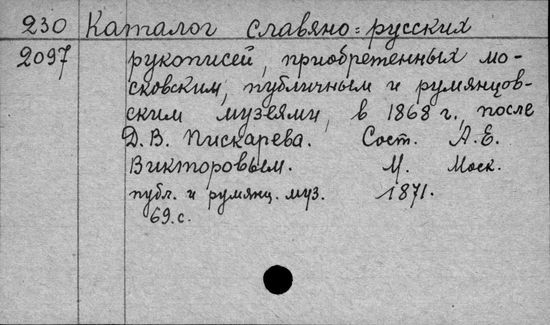 230 Каталог славяно=русских
2097 рукописей, приобретенных мо-
сковским, публичным и румянцов-
ским музеями, в 1868 г., после
Д. В. Пискарева. Сост. А. Е.
Викторовым. М. Моск.
публ. и румянц. муз. 1871.
69.с.